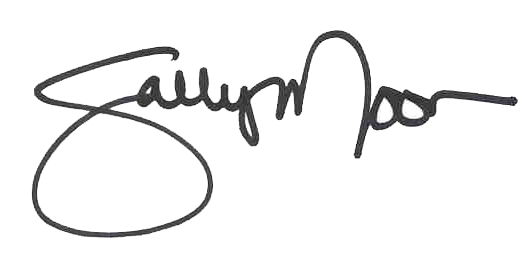 Sally Moor